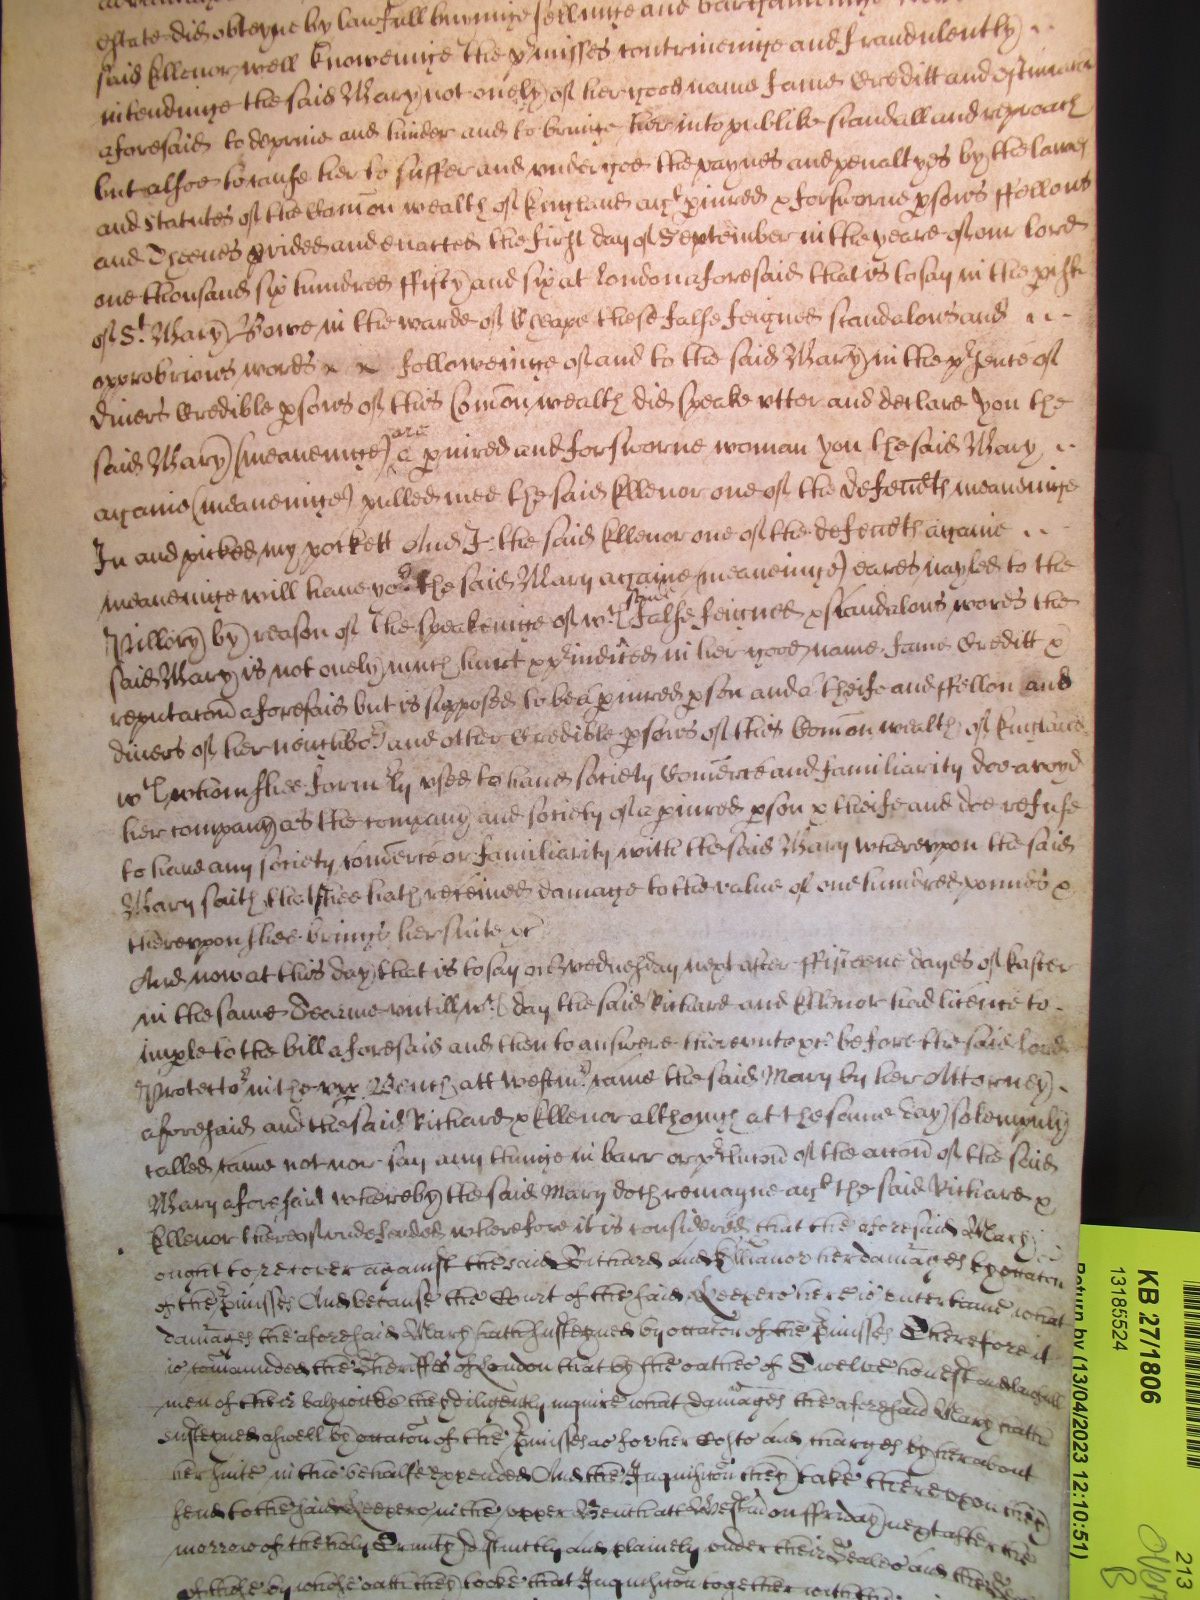 estate did obteyne by lawfull buyinge sellinge and bargaininge
said Ellenor well knoweinge the p'misses contriveinge and fraudulently
intendinge the said Mary not onely of her good name fame Creditt and estimacon
aforesaid to deprive and hinder and to bringe her into publike scandall and reproach
but alsoe to cause her to suffer and undergoe the paynes and penaltyes by the lawes
and Statutes of the Comon wealth of England agt pjured & forsworne psons ffellons
and Theeves pvided and enacted the first day of September in the yeare of our Lord
one thousand six hundred ffifty and six at London aforesaid that is to say in the pish
of St Mary Bowe in the warde of Cheape these false feigned scandalous and
oprobrious words x x followeinge of and to the said Mary in the p'sence of
divers Credible psons of this Comon wealth did speake utter and declare you the
said Mary (meaneinge) are a pjured and forsworne woman you the said Mary
againe (meaneinge) pulled mee the said Ellenor one of the defendts meaneinge
In and picked my pockett And I the said Ellenor one of the defendts againe
meaneinge will have yor the said Mary againe (meaneinge) eares nayled to the
Pillory by reason of the speakeinge of wch said false feigned & scandalous words the
said Mary is not onely much hurt & p'iudiced in her good name fame Creditt &
reputacon aforesaid but is supposed to bee a pjured pson and a theife and ffellon and
divers of her neighbors and other Credible psons of this Comon wealth of England
wth whom shee formly used to have society Comerce and familiarity doe avoyd
her company as the company and society of a pjured pson & theife and doe refuse
to have any society comerce or familiarity with the said Mary whereupon the said
Mary saith that shee hath received damage to the value of one hundred pounds &
thereupon shee brings her suite &c
And now at this day that is to say on Wednesday next after ffifteene dayes of Easter
in the same Tearme untill wch day the said Richard and Ellenor had licence to
imple to the bill aforesaid and then to answere thereunto &c before the said lord
Protector in the upp Bench att Westmr came the said Mary by her Attorney
aforesaid and the said Richard & Ellenor although at the same day solempnly
called came not nor say any thinge in barr or p'clucon of the accon of the said
Mary aforesaid whereby the said Mary doth remayne agt the said Richard &
Ellenor thereof undefended wherefore it is considered that the aforesaid Mary
ought to recover against the said Richard and Ellianor her damages by occacon
of the p'misses And because the Court of the said Keepers here is unterteine what
damages the aforesaid Mary hath susteyned by occacon of the p'misses Therefore it
is comaunded the Sheriffes of London that by the oathes of Twelve honest and lawfull
men of their balywicke they diligently inquire what damages the aforesaid Mary hath
susteyned aswell by occacon of the p'misses as for her Costs and charges by her about
her suite in this behalfe expended And the Inquisicon they take thereupon they
send to the said Keepers in the upper Bench att Westm on ffriday next after the
morrow of the holy Trinity distinctly and plainely under their Seales and the Seales
of those by whose oath they tooke that Inquisicon together with
KB 27/1806
13185524
Return by (13/04/2023 12:10:51)
213